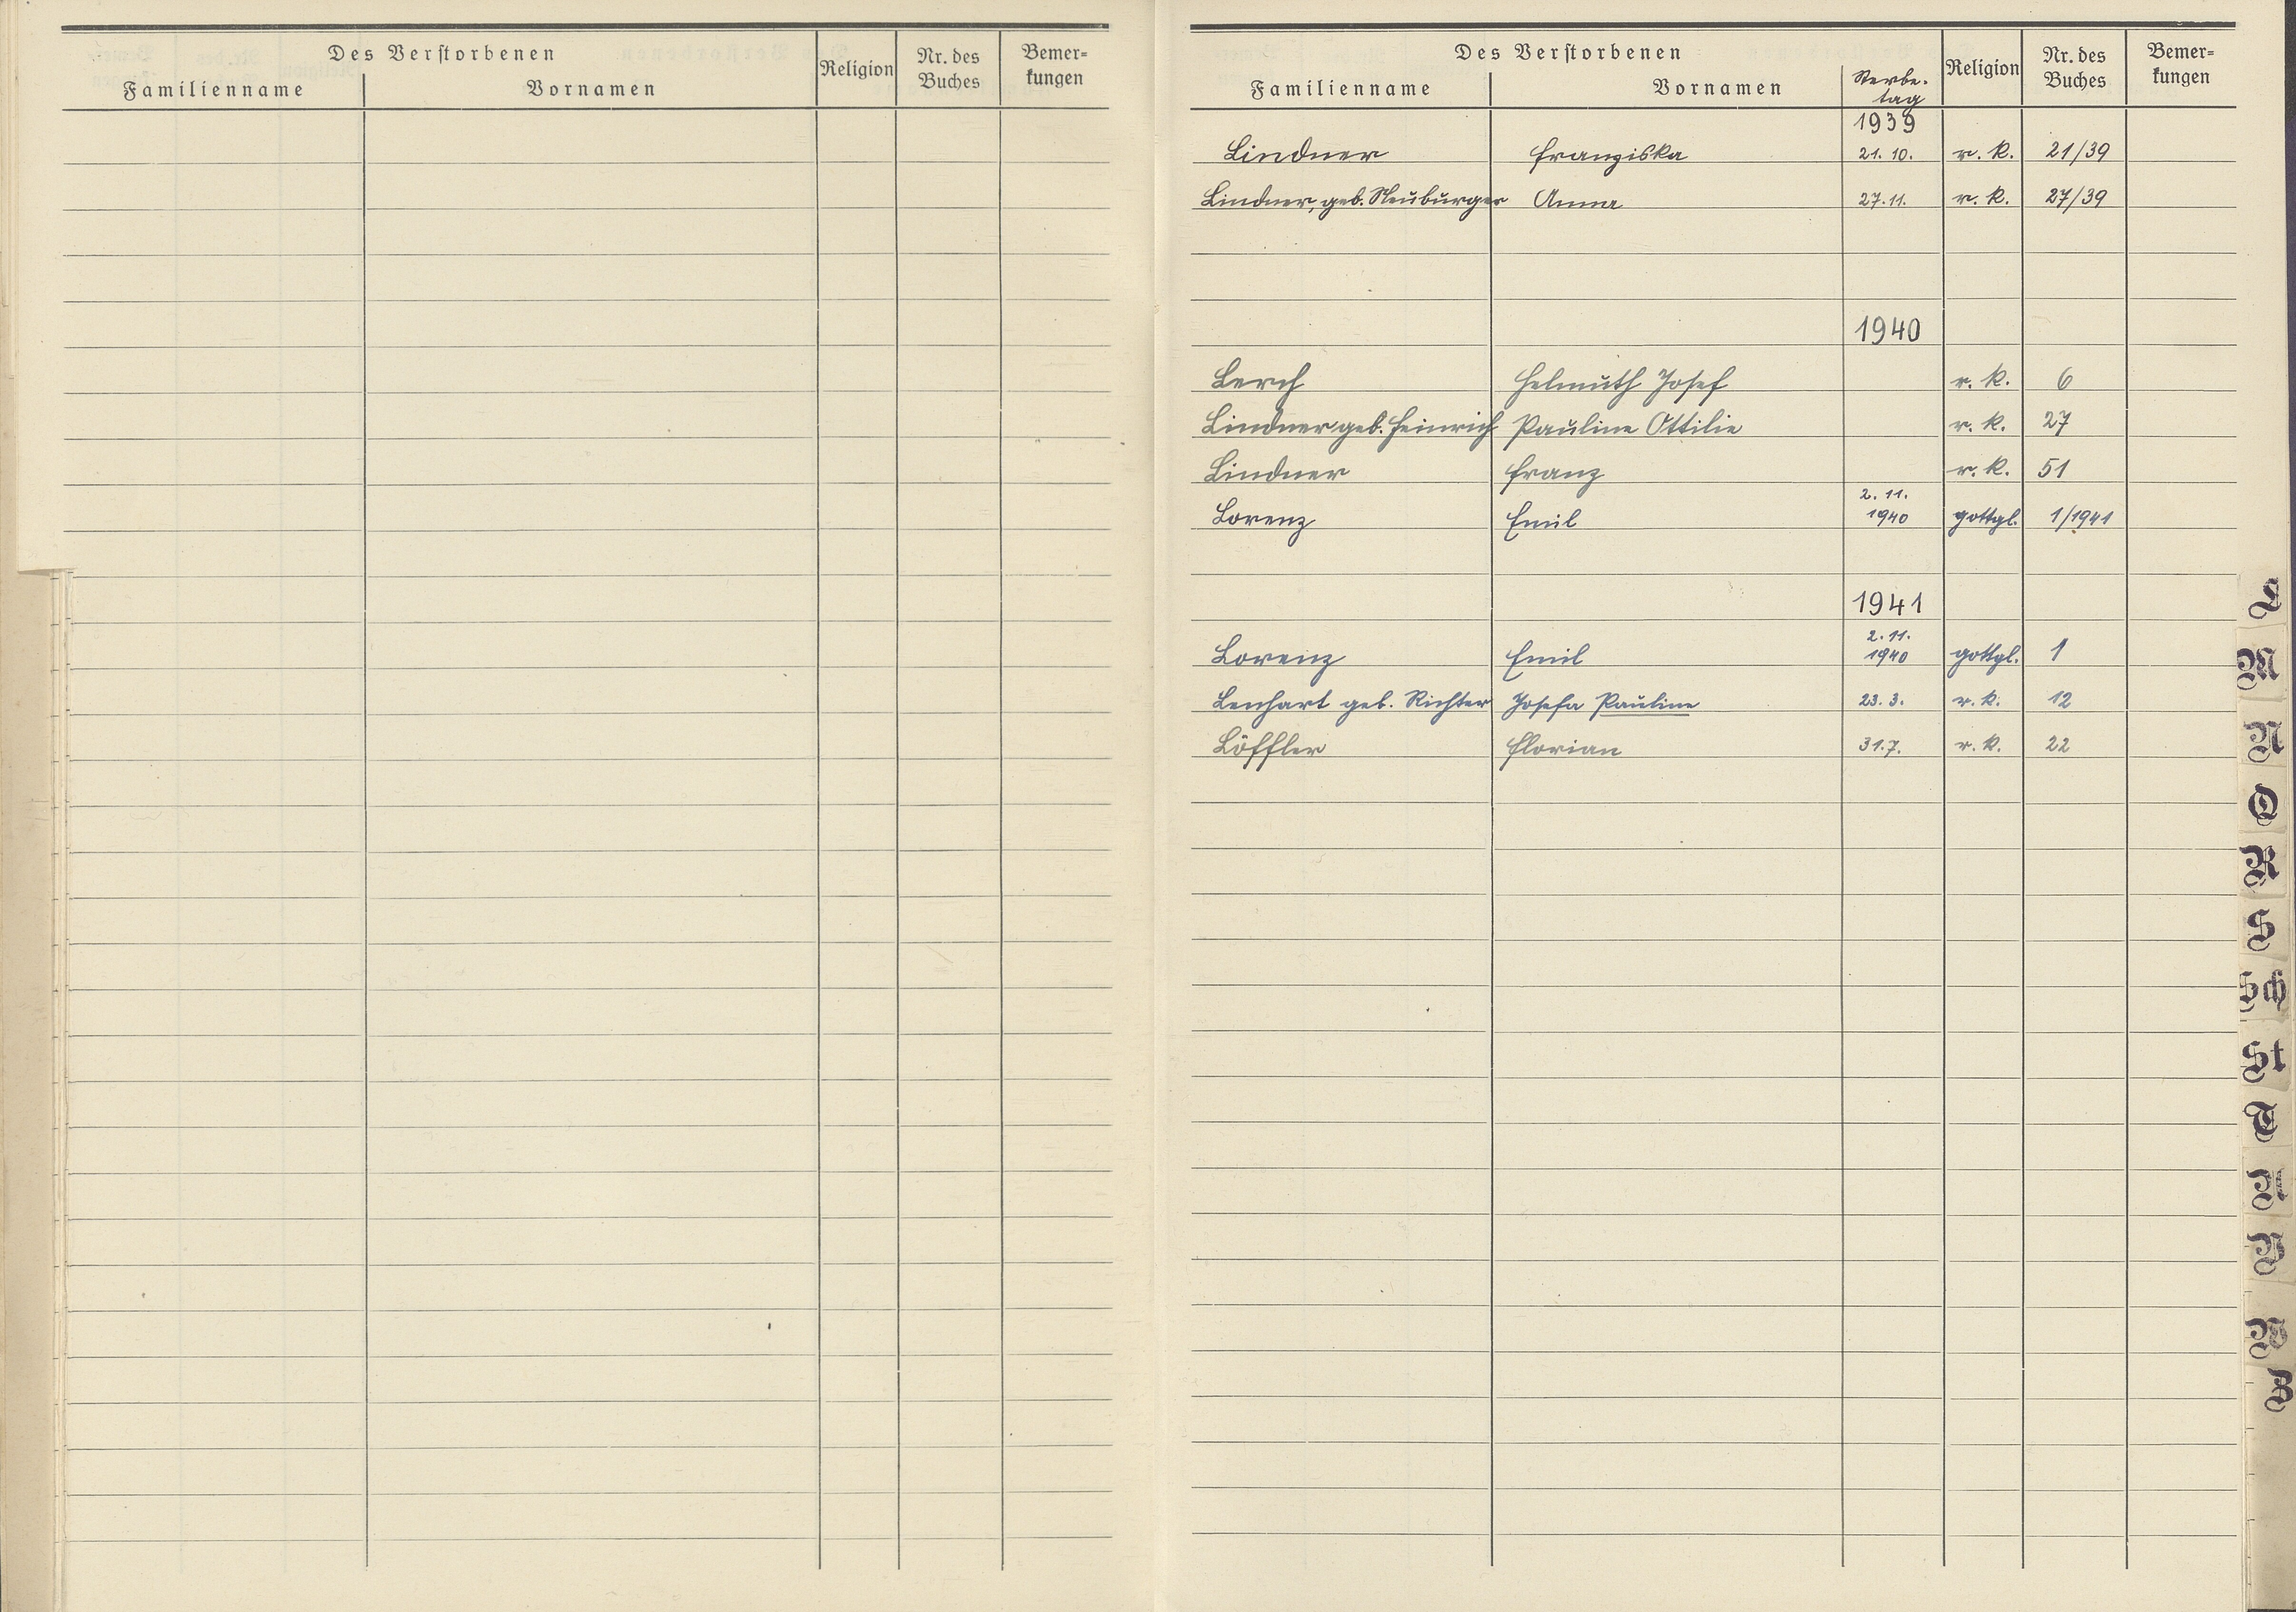 Des Verstorbenen
Familienname Vornamen Religion Nr. des Buches Bemer-kungen
Des Verstorbenen
Familienname Vornamen Sterbe-tag Religion Nr. des Buches Bemer-kungen
1939
Lindner Franziska 21. 10. r. k. 21/39
Lindner, geb. Neuburger Anna 27. 11. r. k. 27/39
1940
Lerch Helmuth Josef r. k. 6
Lindner geb. Heinrich Pauline Ottilie r. k. 27
Lindner Franz r. k. 51
Lorenz Emil 2. 11. 1940 gottgl. 1/1941
1941
Lorenz Emil 2. 11. 1940 gottgl. 1
Lenhart geb. Richter Josefa Pauline 23. 3. r. k. 12
Löffler Florian 31. 7. r. k. 22
L
M
N
O
R
S
Sch
St
T
U
V
W
Z